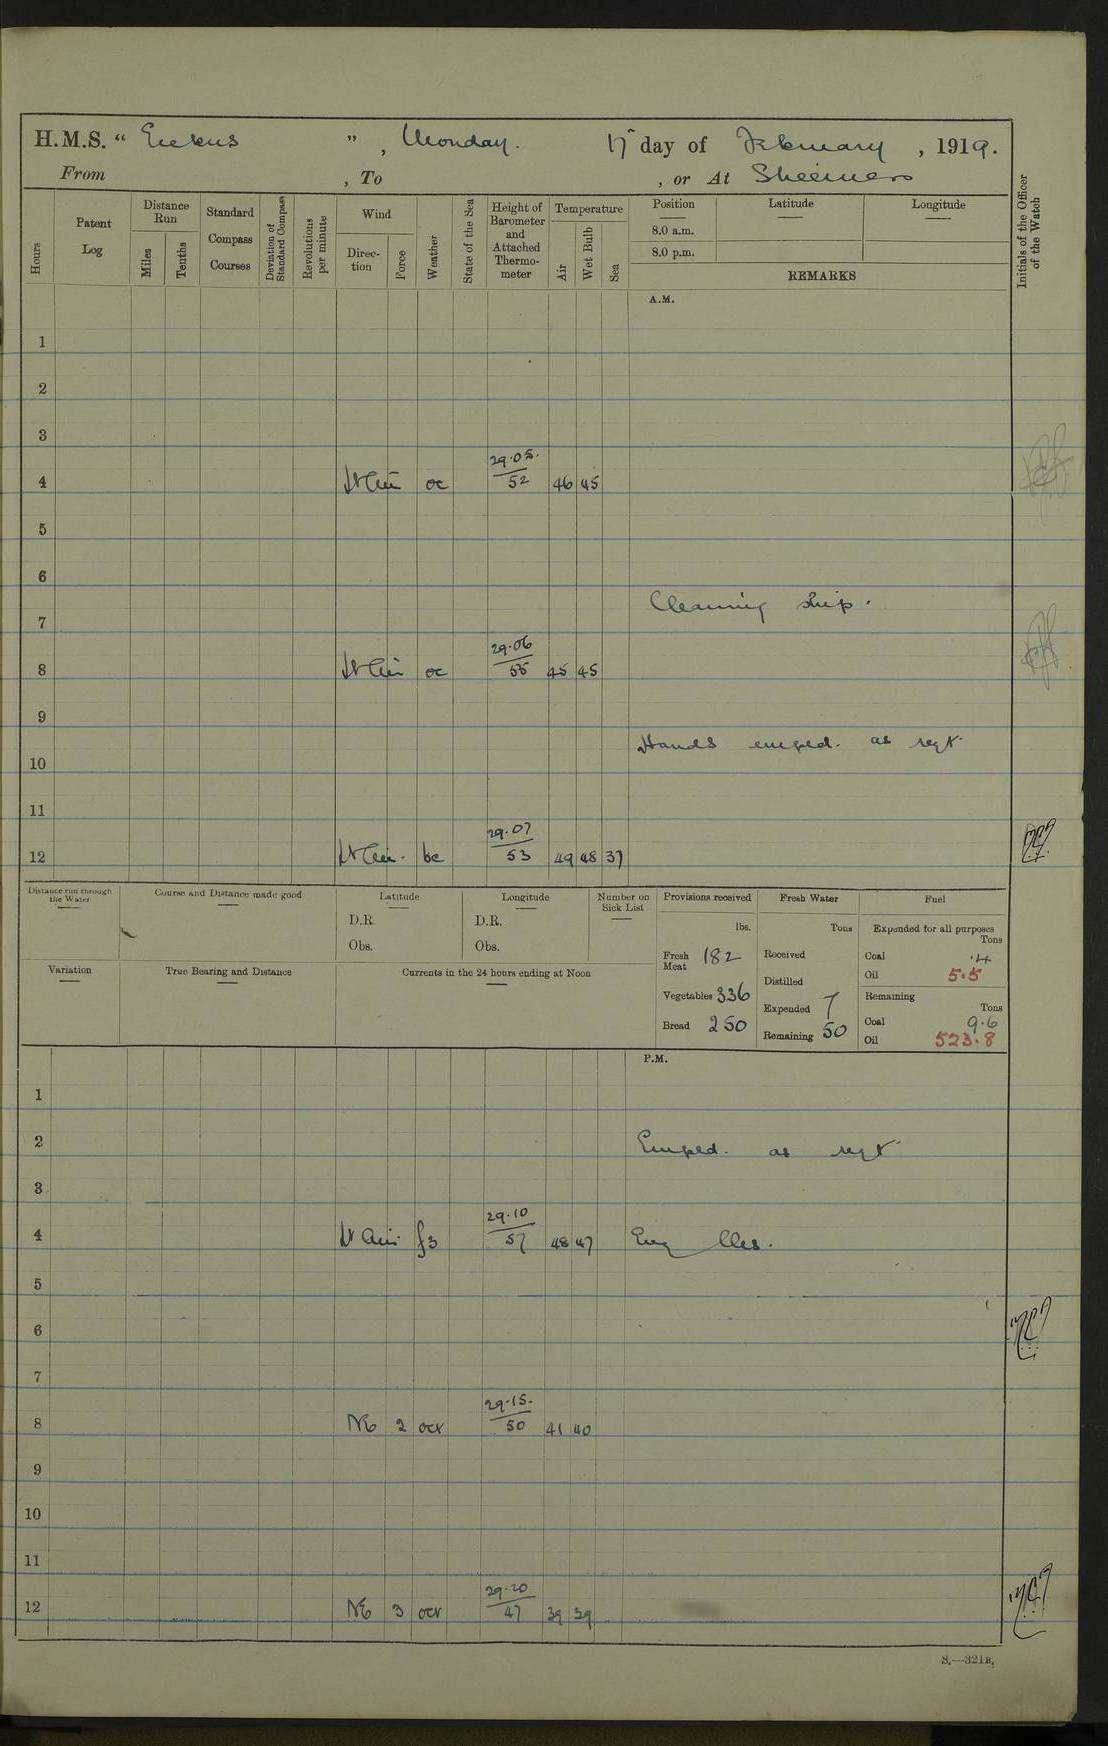 H.M.S. “ ” , Monday. 17th day of February , 1919.
From , To , or At Sheerness
Hours
Patent Log
Distance Run
Miles
Tenths
Standard Compass Courses
Deviation of Standard Compass
Revolutions per minute
Wind
Direction
Force
Weather
State of the Sea
Height of Barometer and Attached Thermometer
Temperature
Air
Wet Bulb
Sea
Position
Latitude
Longitude
8.0 a.m.
8.0 p.m.
REMARKS
Initials of the Officer of the Watch
A.M.
1
2
3
4 Lt Air oc 29.05. 52 46 45
5
6
Cleaning ship.
7
8 Lt Air oc 29.06 55 45 45
9
Hands emped. as reqt.
10
11
12 Lt Air. bc 29.07 53 49 48 37
Distance run through the Water
Course and Distance made good
Latitude
D.R.
Obs.
Longitude
D.R.
Obs.
Number on Sick List
Variation
True Bearing and Distance
Currents in the 24 hours ending at Noon
Provisions received
lbs.
Fresh Meat 182
Vegetables 336
Bread 250
Fresh Water
Tons
Received
Distilled
Expended 7
Remaining 50
Fuel
Expended for all purposes
Tons
Coal .4
Oil 5.5
Remaining
Tons
Coal 9.6
Oil 523.8
P.M.
1
2 Emped. as reqt.
3
4 Lt Air. f3 29.10 57 48 47
5
6
7
8 NE 2 ocr 29.15. 50 41 40
9
10
11
12 NE 3 ocr 29.20 47 39 39
S.—321B.